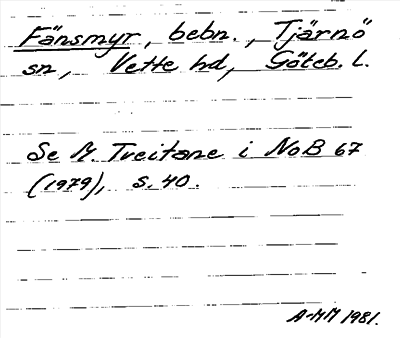 Fänsmyr, bebn., Tjärnö
sn, Vette hd, Göteb. L.
Se M. Tveitane i NoB 67
(1979), s. 40.
A-MM 1981.